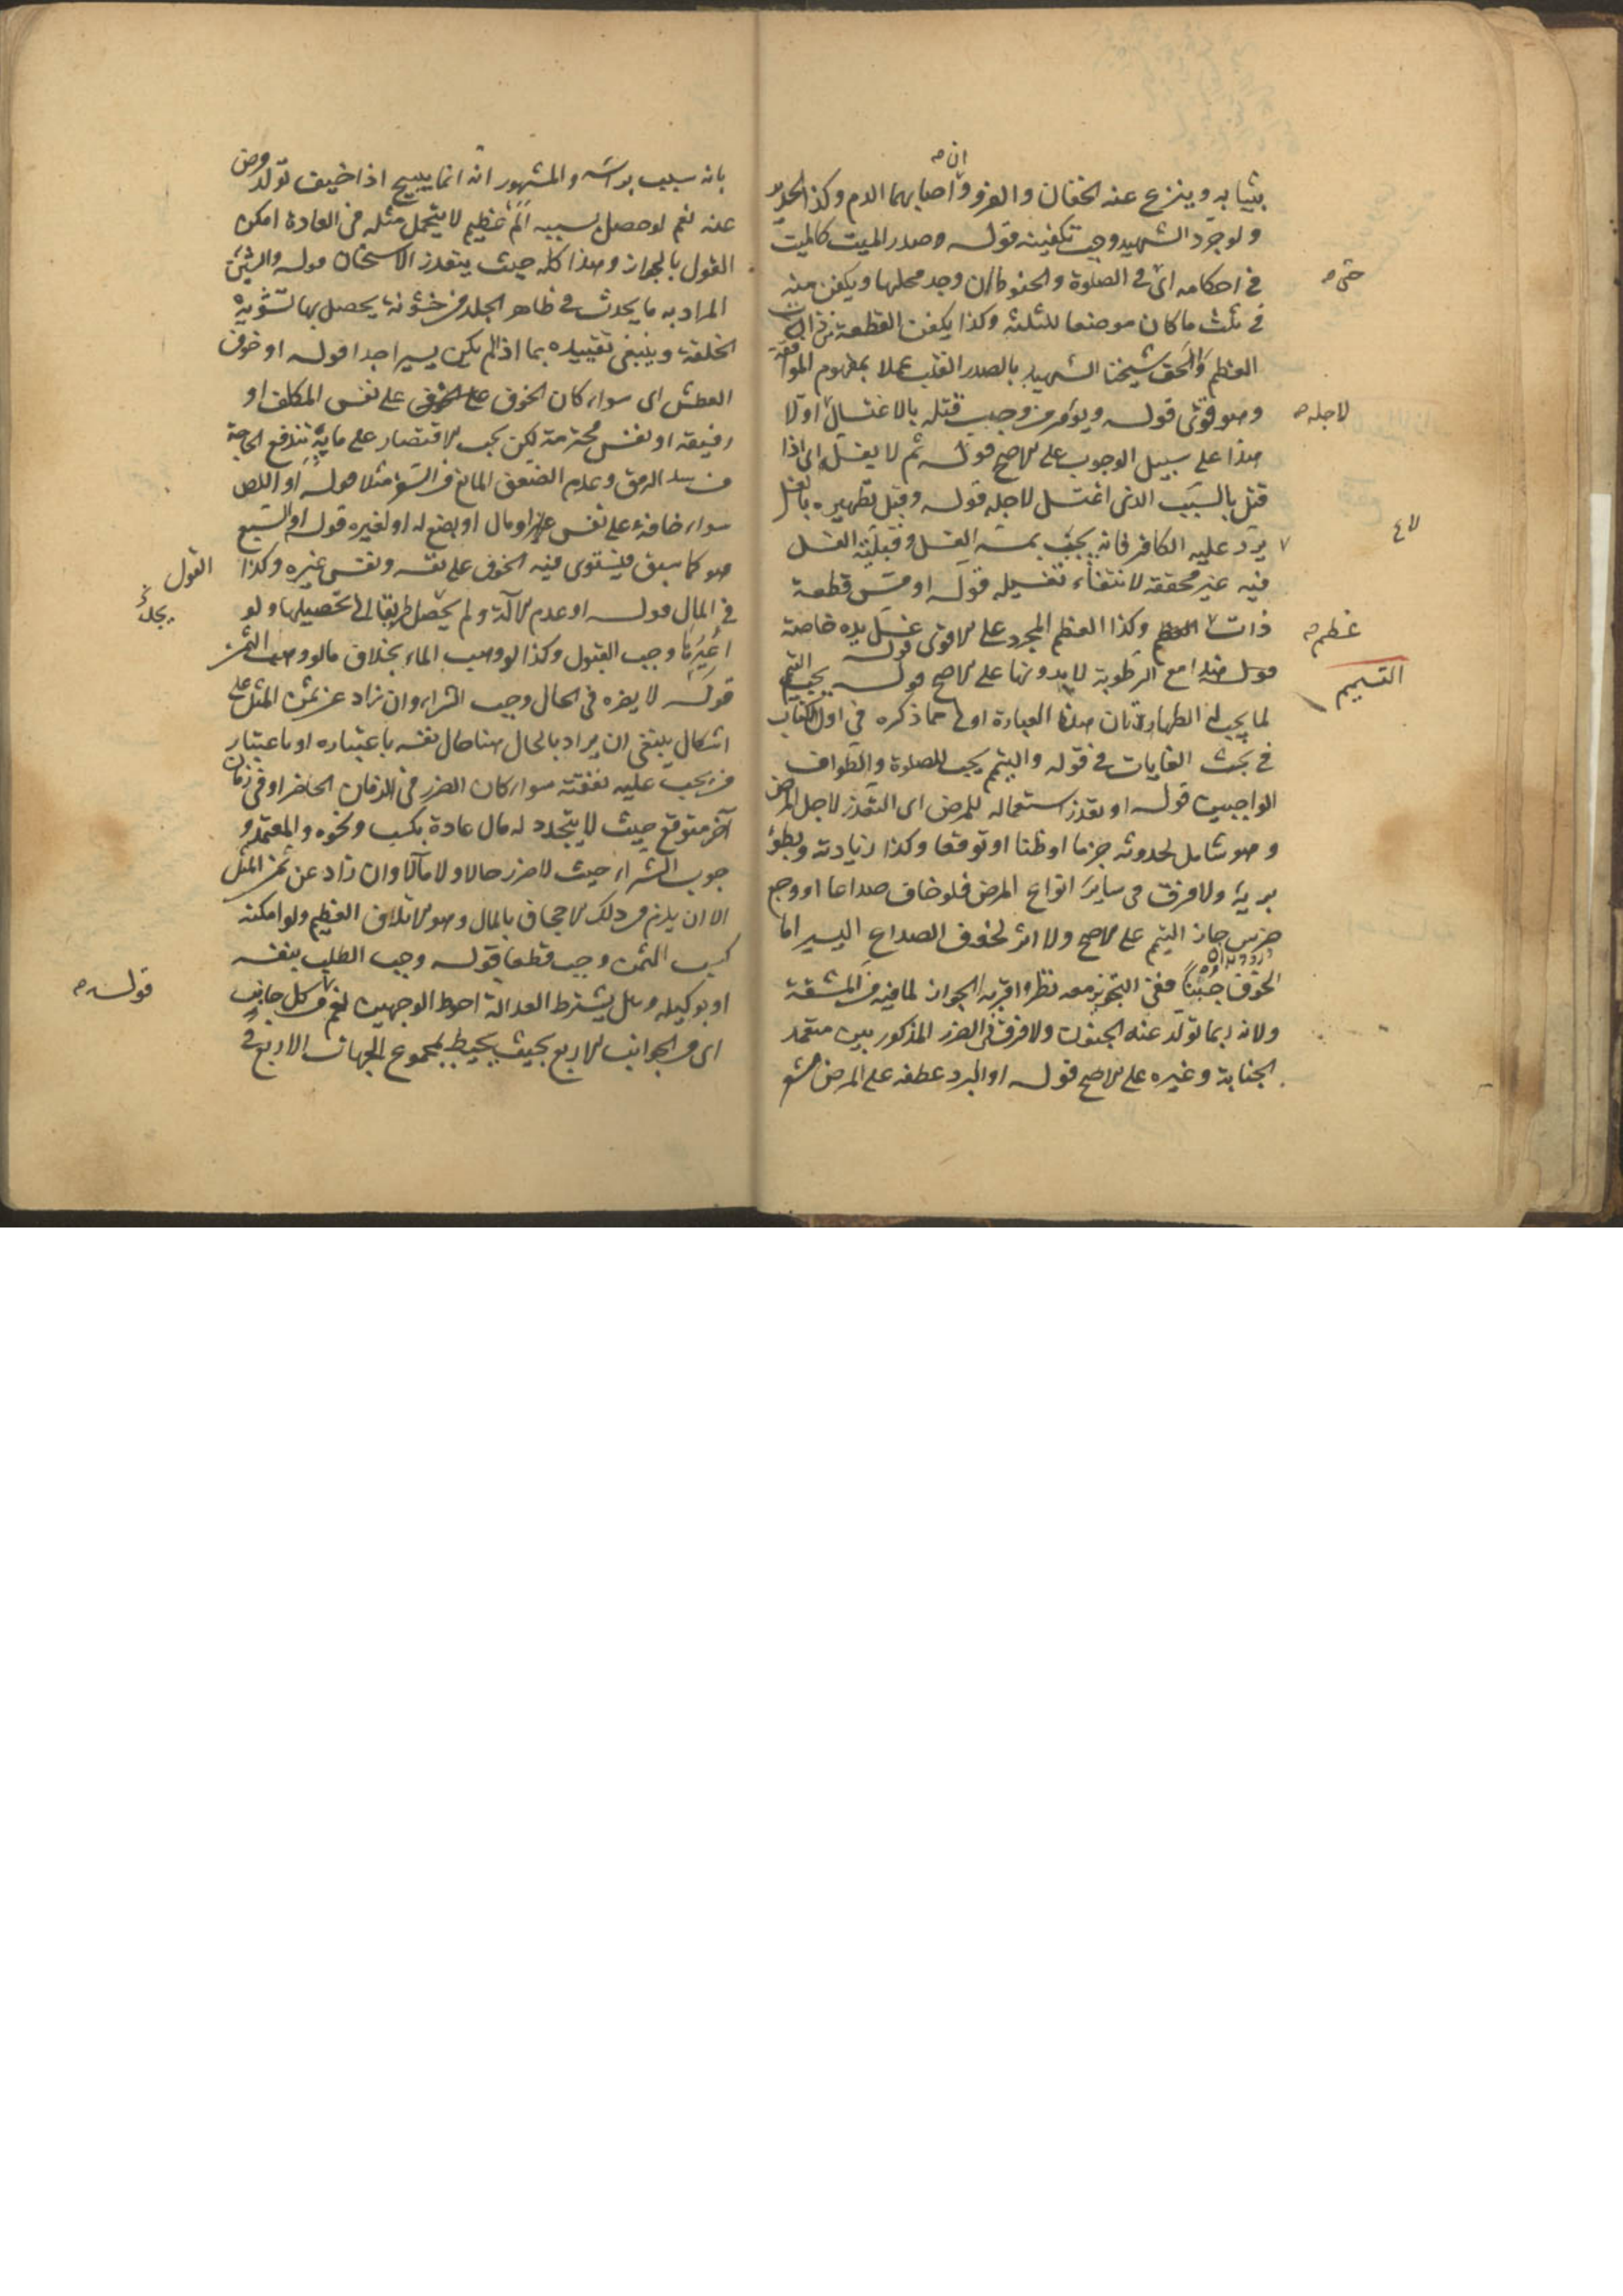 بثيابه وينزع عنه الخفان والفرو وان اصابهما الدم وكذا الجلود
ولو جرد الشهيد وجب تكفينه قوله وصدر الميت كالميت
في احكامه اى في الصلوة والحنوط ان وجد محلها ويكفن منه
في ثلث ما كان موضعا للثلثة وكذا يكفن القطعة ذات
العظم والحق شيخنا الشهيد بالصدر القلب عملا بمفهوم الموافقة
وهو قوى قوله ويؤمر من وجب قتله بالاغتسال اولا
هذا على سبيل الوجوب على الاصح قوله ثم لا يغسل اى اذا
قتل بالسبب الذى اغتسل لاجله قوله وقبل تطهيره بالغسل
يرد عليه الكافر فانه يجب بمسه الغسل وقبلية الغسل
فيه غير محققة لانتفاء تغسيله قوله او مس قطعة
ذات وكذا العظم المجرد على الاقوى قوله غسل يده خاصة
هذا مع الرطوبة لا بدونها على الاصح قوله يجب التيمم
لما يجب له الطهارتان هذه العبارة اولى مما ذكره في اول الكتاب
في بحث الغايات في قوله والتيمم يجب للصلوة والطواف
الواجبين قوله او تعذر استعماله للمرض اى التعذر لاجل المرض
وهو شامل لحدوثه جزما او ظنا او توقعا وكذا زيادته وبطؤ
برئه ولا فرق في ساير انواع المرض فلو خاف صداعا او وجع
ضرس جاز التيمم على الاصح ولا اثر لخوف الصداع اليسير اما
الخوف جبنا ففى التجويز معه نظر واقربه الجواز لما فيه من المشقة
ولانه ربما تولد عنه الجنون ولا فرق فى الضرر المذكور بين متعمد
الجنابة وغيره على الاصح قوله او البرد عطفه على المرض مشعر
حتى
لاجله
عظم
التيمم
بانه سبب برأسه والمشهور انه انما يبيح اذا خيف تولد مرض
عنه نعم لو حصل بسببه الم عظيم لا يتحمل مثله في العادة امكن
القول بالجواز وهذا كله حيث يتعذر الاسخان قوله والشين
المراد به ما يحدث في ظاهر الجلد من خشونة يحصل بها تشويه
الخلقة وينبغى تقييده بما اذا لم يكن يسيرا جدا قوله او خوف
العطش اى سواء كان الخوف على نفس المكلف او
رفيقه او نفس محترمة لكن يجب الاقتصار على ما به تندفع الحاجة
من سد الرمق وعدم الضعف المانع من السفر مثلا قوله او اللص
سواء خافه على نفس او مال او بضع له او لغيره قوله او السبع
هو كما سبق فيستوى فيه الخوف على نفسه ونفس غيره وكذا
في المال قوله او عدم الآلة ولم يحصل طريقا الى تحصيلها ولو
اعيرها وجب القبول وكذا لو وهب الماء بخلاف ما لو وهب الثمن
قوله لا يضره في الحال وجب الشراء وان زاد عن ثمن المثل على
اشكال ينبغى ان يراد بالحال هنا حال نفسه باعتباره او باعتبار
من يجب عليه نفقته سواء كان الضرر في الزمان الحاضر او في زمان
آخر متوقع حيث لا يتجدد له مال عادة بكسب ونحوه والمعتمد و
جوب الشراء حيث لا ضرر حالا ولا مآلا وان زاد عن ثمن المثل
الا ان يلزم من ذلك الاجحاف بالمال وهو الاتلاف العظيم ولو امكنه
كسب الثمن وجب قطعا قوله وجب الطلب بنفسه
او بوكيله وهل يشترط العدالة احوط الوجهين نعم من كل جانب
اى من الجوانب الاربع بحيث يحيط بمجموع الجهات الاربع في
القول
قوله